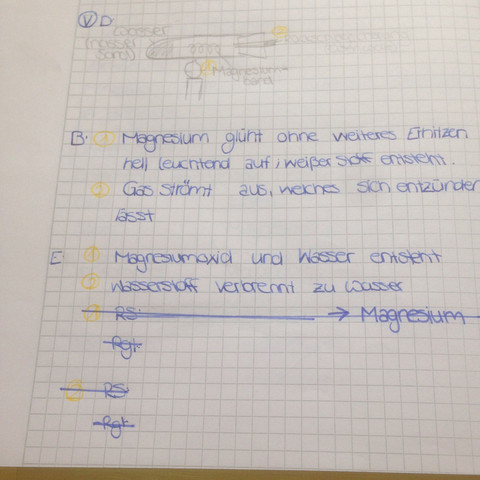 V D
Wasser
(nasser
Sand)
②
① Magnesium-
band
B: ① Magnesium glüht ohne weiteres Erhitzen
hell leuchtend auf, weißer Stoff entsteht.
② Gas strömt aus, welches sich entzünden
lässt
E: ① Magnesiumoxid und Wasser entsteht
② Wasserstoff verbrennt zu Wasser
① RS: → Magnesium
Rgl:
② RS:
Rgl: